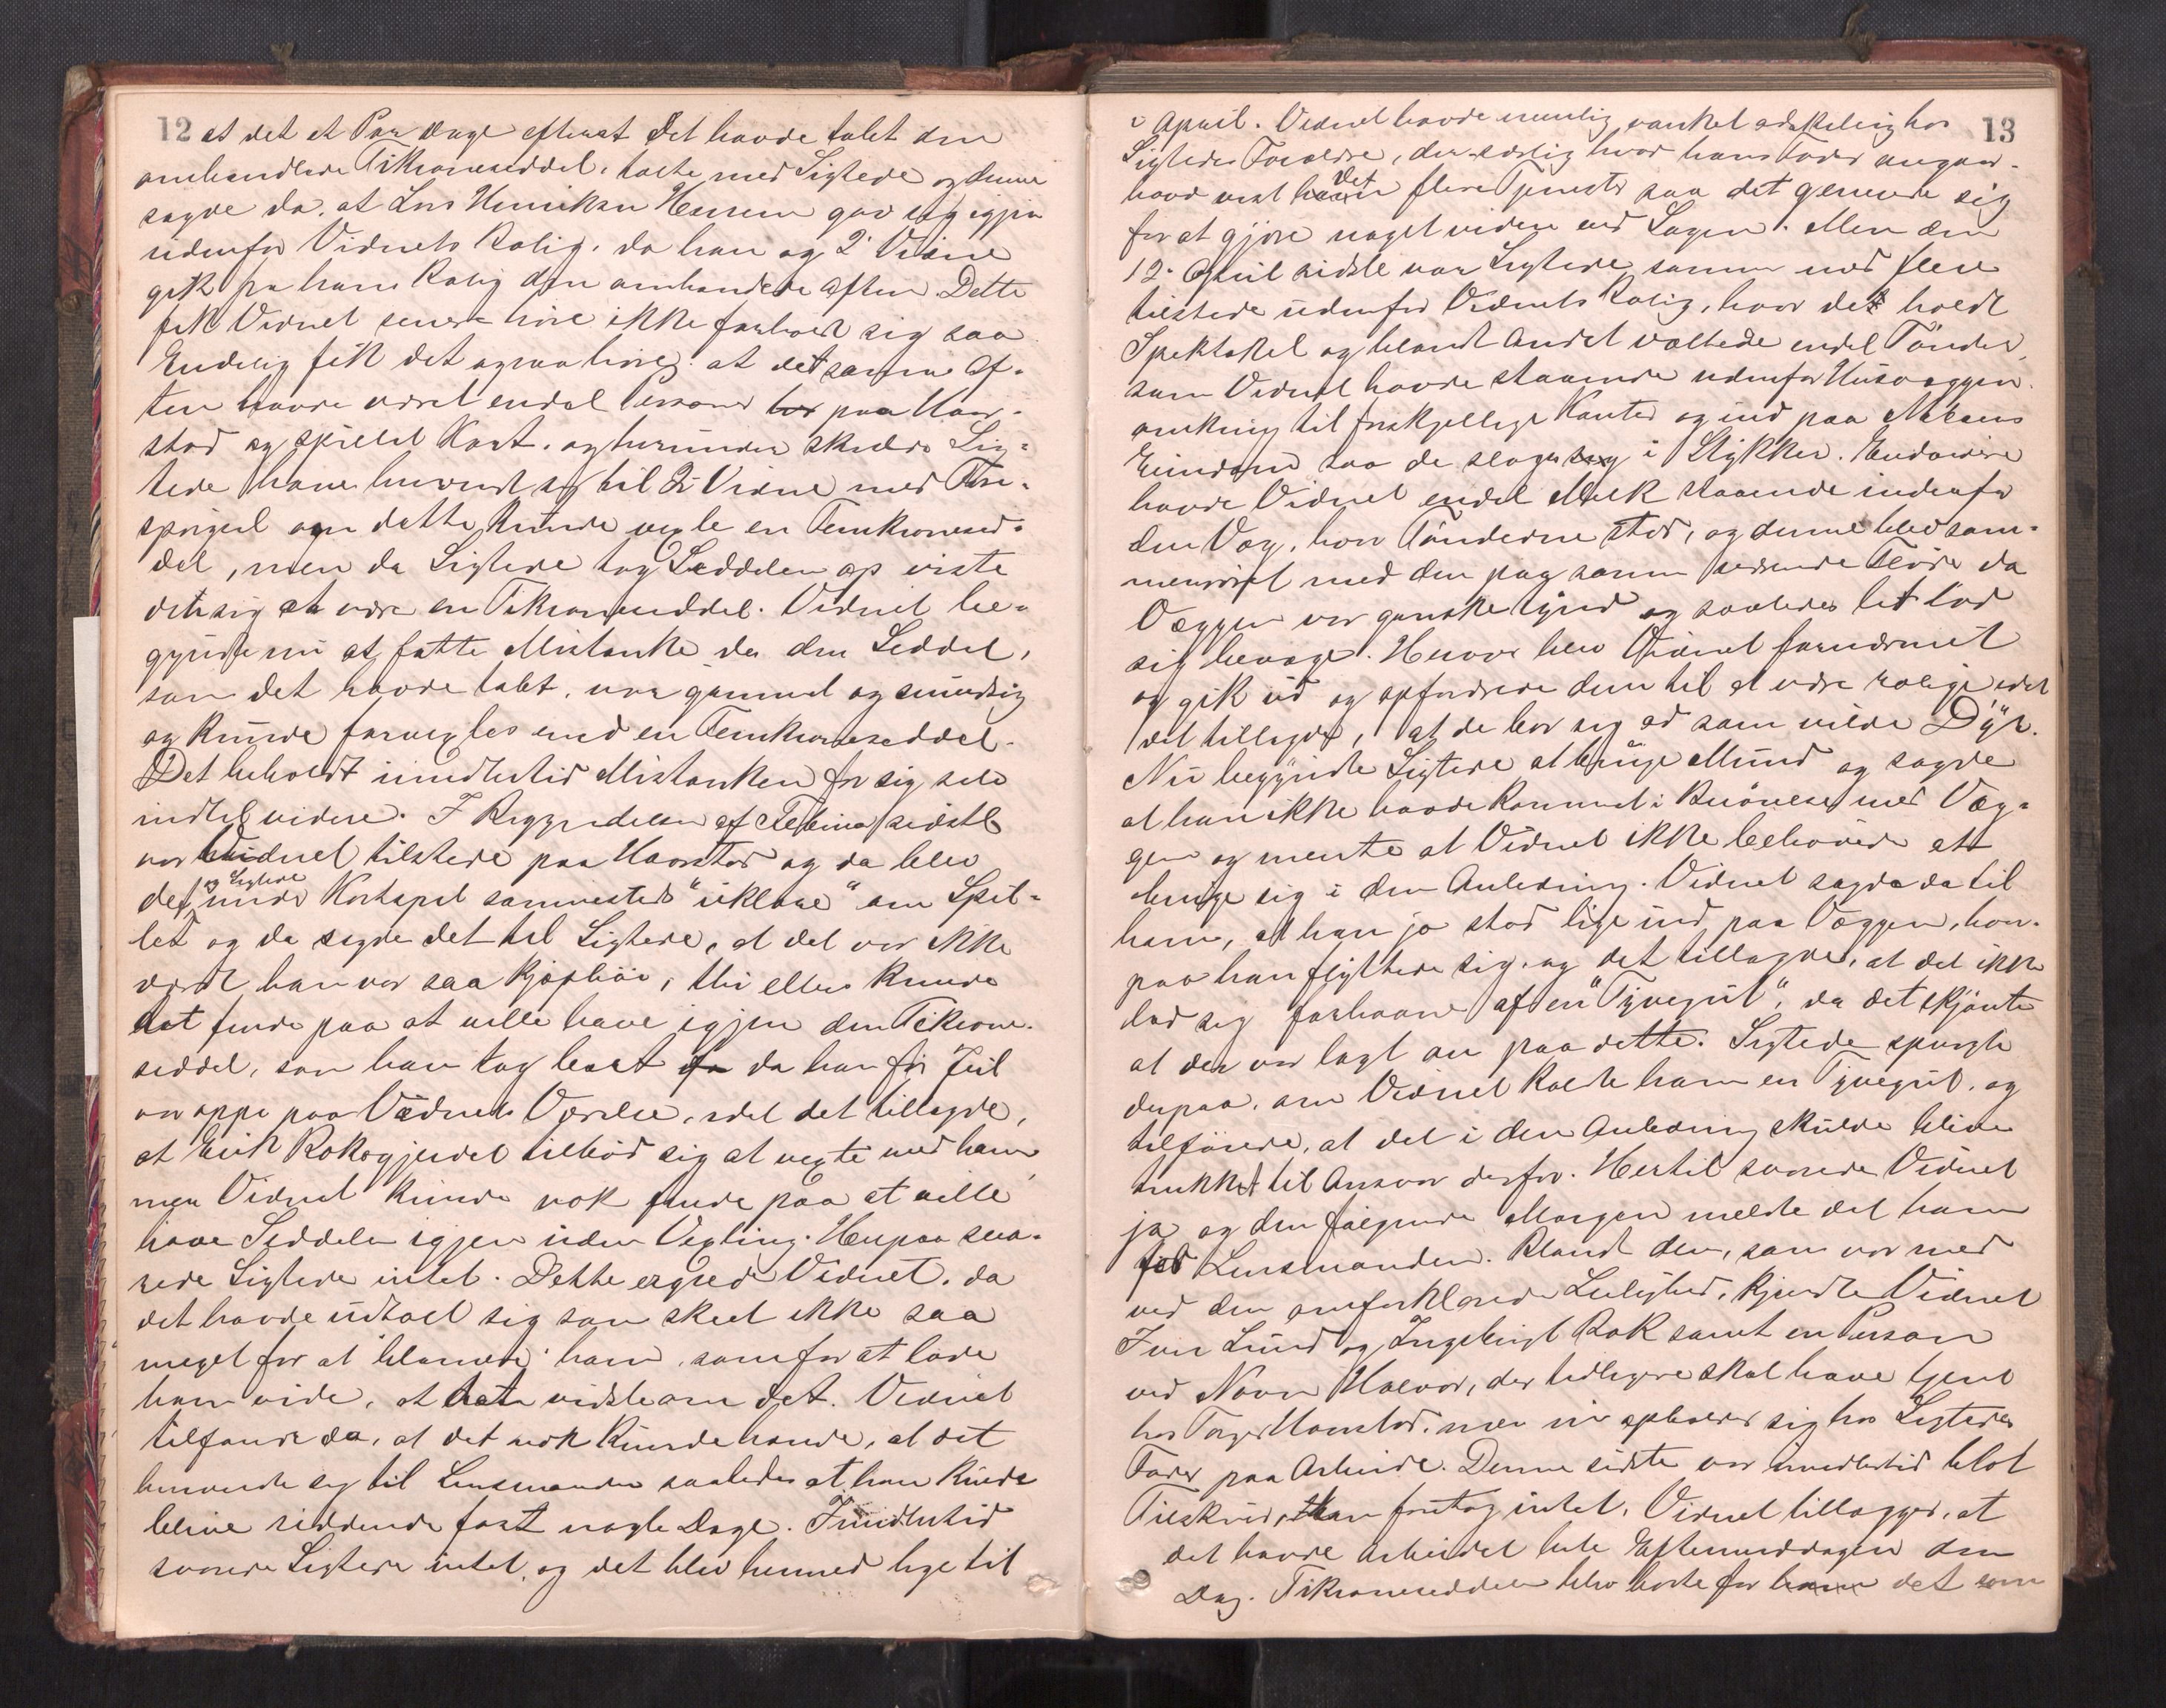 12 at det et Par Dage efterat det havde tabt den
omhandlede Tikroneseddel, talte med Sigtede og denne
sagde da, at Lars Henriksen Hensem gav sig igjen
udenfor Vidnets Bolig, da han og 2' Vidne
gik fra hans Bolig den omhandlede Aften. Dette
fik Vidnet senere høre ikke forholdt sig saa.
Endelig fik det ogsaa høre, at det samme Af-
ten havde været endel Personer paa Haar-
stad og spillet Kort, og herunder skulde Sig-
tede have henvendt sig til 2' Vidne med Fore-
spørgsel om dette kunde vexle en Femkronesed-
del, men da Sigtede tog Seddelen op viste
det sig at være en Tikroneseddel. Vidnet be-
gyndte nu at fatte Mistanke da den Seddel,
som det havde tabt, var gammel og smudsig
og kunde forvexles med en Femkroneseddel.
Det beholdt imidlertid Mistanken for sig selv
indtil videre. I Begyndelsen af Februar sidstl
var Vidnet tilstede paa Haarstad og da blev
det og Sigtede under Kortspil sammesteds "uklare" om Spil-
let og da sagde det til Sigtede, at det var ikke
værdt han var saa kjæphøi, thi ellers kunde
det finde paa at ville have igjen den Tikrone-
seddel, som han tog bort da han før Jul
var oppe paa Vidnets Værelse, idet det tillagde,
at Erik Roksgjerdet tilbød sig at vexle med ham
men Vidnet kunde nok finde paa at ville
have Seddelen igjen uden Vexling. Herpaa sva-
rede Sigtede intet. Dette ærgred Vidnet, da
det havde udtalt sig som skeet ikke saa
meget for at blamere ham, som for at lade
ham vide, at det vidste om det. Vidnet
tilføiede da, at det nok kunde hænde, at det
henvendte sig til Lensmanden saaledes at han kunde
blive siddende fast nogle Dage. Imidlertid
svarede Sigtede intet, og det blev hermed lige til
13
i April. Vidnet havde nemlig vanket adskillig hos
Sigtedes Forældre, der særlig hvad hans Fader angaar
havd vist det flere Tjenester saa det generede sig
for at gjøre noget videre ved Sagen. Men den
12. April sidstl var Sigtede samm med flere
tilstede udenfor Vidnets Bolig, hvor de holdt
Spektakel og blandt Andet væltede endel Tønder,
som Vidnet havde staaende udenfor Husvæggen
omkring til forskjellige Kanter og ind paa Naboens
Eiendom saa de sloges i Stykker. Endvidere
havde Vidnet endel Melk staaende indenfor
den Væg, hvor Tønderne stod, og denne blev sam-
menrørt med den paa samme værende Fløde da
Væggen var ganske tynd og saaledes let lod
sig bevæge. Herover blev Vidnet fornærmet
og gik ud og opfordrede dem til at være rolige idet
det tillagde, at de bar sig ad som vilde Dyr.
Nu begyndte Sigtede at bruge Mund og sagde
at han ikke havde kommet i Berørelse med Væg-
gen og mente at Vidnet ikke behøvede at
bruge sig i den Anledning. Vidnet sagde da til
ham, at han jo stod lige ind paa Væggen, hvor-
paa han flyttede sig, og det tillagde, at det ikke
lod sig forhaane af en "Tyvegut", da det skjønte
at det var lagt an paa dette. Sigtede spurgte
derpaa, om Vidnet kaldte ham en Tyvegut, og
tilføiede, at det i den Anledning skulde blive
trukket til Ansvar derfor. Hertil svarede Vidnet
ja og den følgende Morgen meldte det ham
til Lensmanden. Blandt dem, som var med
ved den omforklarede Leilighed, kjendte Vidnet
Iver Lund og Ingebrigt Rok samt en Person
ved Navn Halvor, der tidligere skal have tjent
hos Torger Haarstad, men nu opholder sig hos Sigtedes
Fader paa Arbeide. Denne sidste var imidlertid blot
Tilskuer, Han foretog intet. Vidnet tillægger, at
det havde arbeidet hele Eftermiddagen den
Dag. Tikroneseddelen blev borte for det som